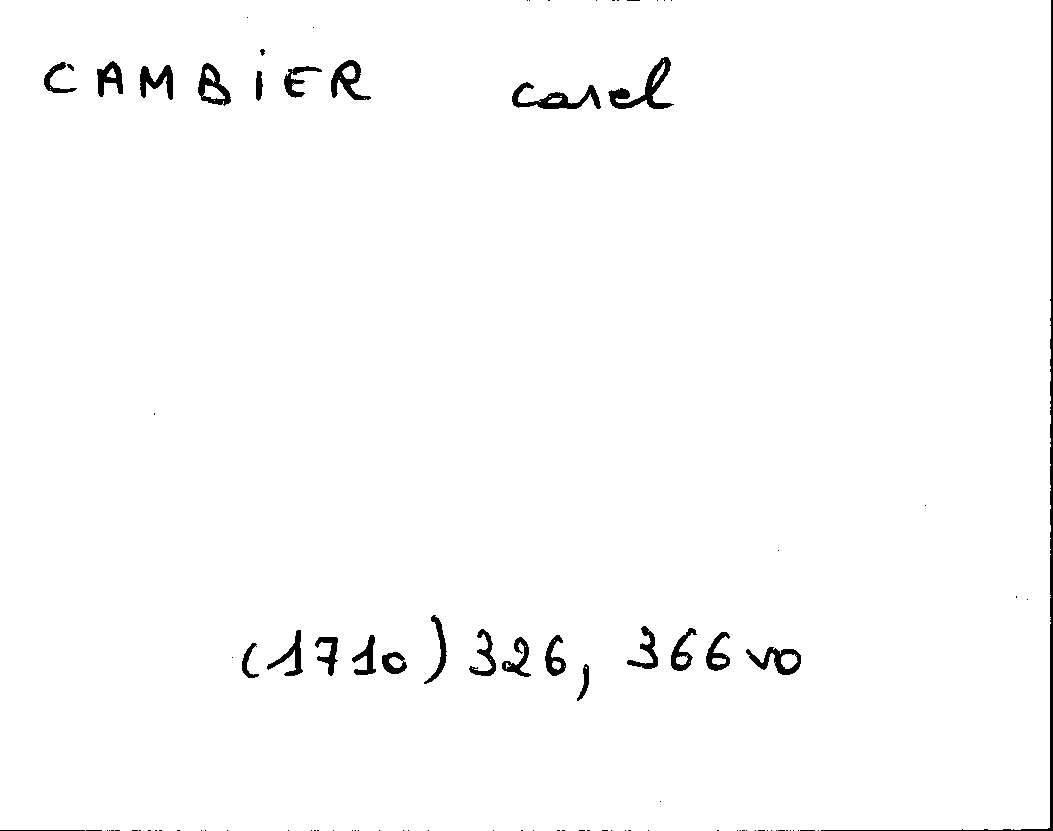 CAMBiER carel
(1710) 326, 366 vo